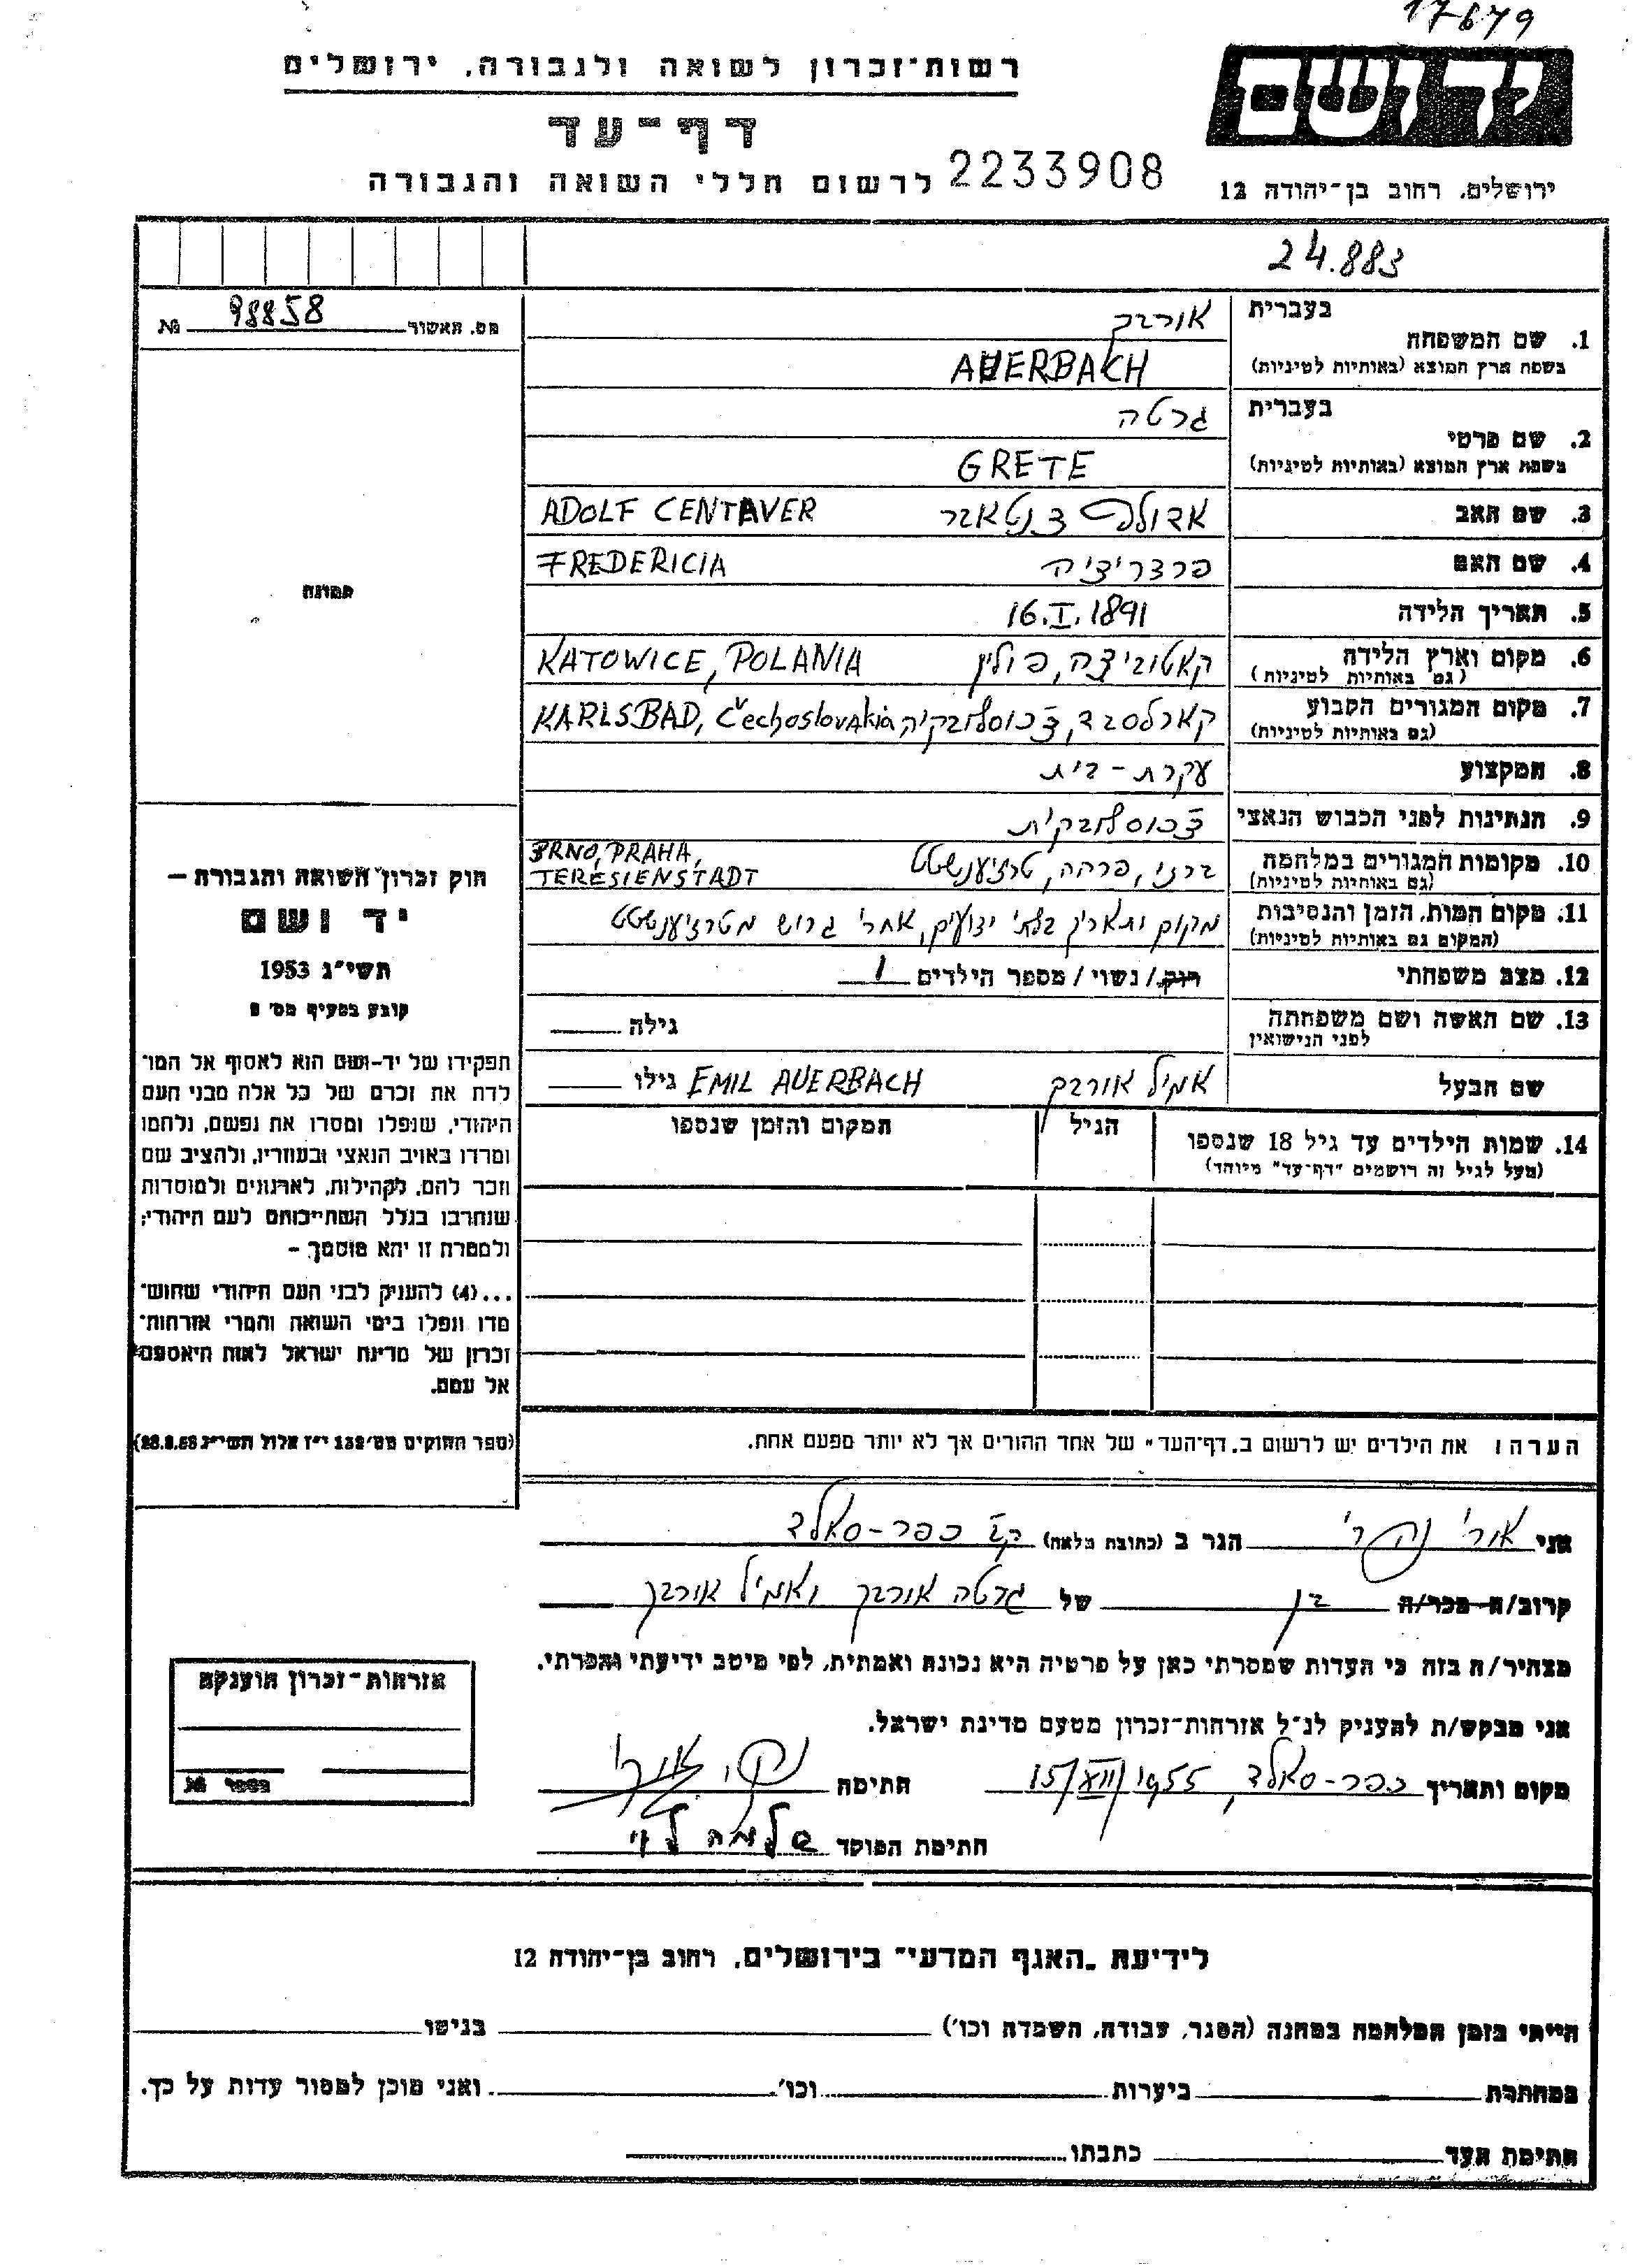 17679
רשות־זכרון לשואה ולגבורה, ירושלים
יד ושם
דף־עד
לרשום חללי השואה והגבורה 2233908
ירושלים, רחוב בן־יהודה 12
24.883
מס. תאשור 98858 №
בעברית אורבך
1. שם המשפחה
בשפת ארץ המוצא (באותיות לטיניות) AUERBACH
בעברית גרטה
2. שם פרטי
בשפת ארץ המוצא (באותיות לטיניות) GRETE
3. שם האב אדולף צנטאבר ADOLF CENTAVER
4. שם האם פרדריציה FREDERICIA
5. תאריך הלידה 16.I.1891
6. מקום וארץ הלידה קאטוביצה, פולין KATOWICE, POLANIA
(גם באותיות לטיניות)
7. מקום המגורים הקבוע קארלסבד, צ'כוסלובקיה KARLSBAD, Čechoslovakia
(גם באותיות לטיניות)
8. המקצוע עקרת-בית
9. הנתינות לפני הכבוש הנאצי צ'כוסלובקית
10. מקומות המגורים במלחמה ברנו, פרהה, טרזיענשטט BRNO, PRAHA,
(גם באותיות לטיניות) TERESIENSTADT
11. מקום המות, הזמן והנסיבות מקום ותאריך בלתי ידועים, אחרי גרוש מטרזיענשטט
(המקום גם באותיות לטיניות)
12. מצב משפחתי רווק/ נשוי/ מספר הילדים 1
13. שם האשה ושם משפחתה גילה
לפני הנישואין
שם הבעל אמיל אורבך EMIL AUERBACH גילו
14. שמות הילדים עד גיל 18 שנספו הגיל המקום והזמן שנספו
(מעל לגיל זה רושמים "דף־עד" מיוחד)
תמונה
חוק זכרון השואה והגבורה –
יד ושם
תשי״ג 1953
קובע בסעיף מס' 2
תפקידו של יד-ושם הוא לאסוף אל המו־
לדת את זכרם של כל אלה מבני העם
היהודי, שנפלו ומסרו את נפשם, נלחמו
ומרדו באויב הנאצי ובעוזריו, ולהציב שם
וזכר להם, לקהילות, לארגונים ולמוסדות
שנחרבו בגלל השתייכותם לעם היהודי;
ולמטרה זו יהא מוסמך –
...(4) להעניק לבני העם היהודי שהוש־
מדו ונפלו בימי השואה והמרי אזרחות־
זכרון של מדינת ישראל לאות היאספם
אל עמם.
(ספר החוקים מס' 132 י״ז אלול תשי״ג 28.8.53)
הערה: את הילדים יש לרשום ב„דף־העד" של אחד ההורים אך לא יותר מפעם אחת.
אני אורי נקרי הגר ב (כתובת מלאה) קב' כפר-סאלד
קרוב/ה מכר/ה בן של גרטה אורבך ואמיל אורבך
מצהיר/ה בזה כי העדות שמסרתי כאן על פרטיה היא נכונה ואמתית, לפי מיטב ידיעתי והכרתי.
אני מבקש/ת להעניק לנ״ל אזרחות־זכרון מטעם מדינת ישראל.
מקום ותאריך כפר-סאלד, 15/XII/1955 חתימה
חתימת הפוקד שלמה לוי
אזרחות־זכרון הוענקה
מספר №
לידיעת „האגף המדעי" בירושלים, רחוב בן־יהודה 12
הייתי בזמן המלחמה במחנה (הסגר, עבודה, השמדה וכו') בגיטו
במחתרת ביערות וכו'. ואני מוכן למסור עדות על כך.
חתימת העד כתבתו